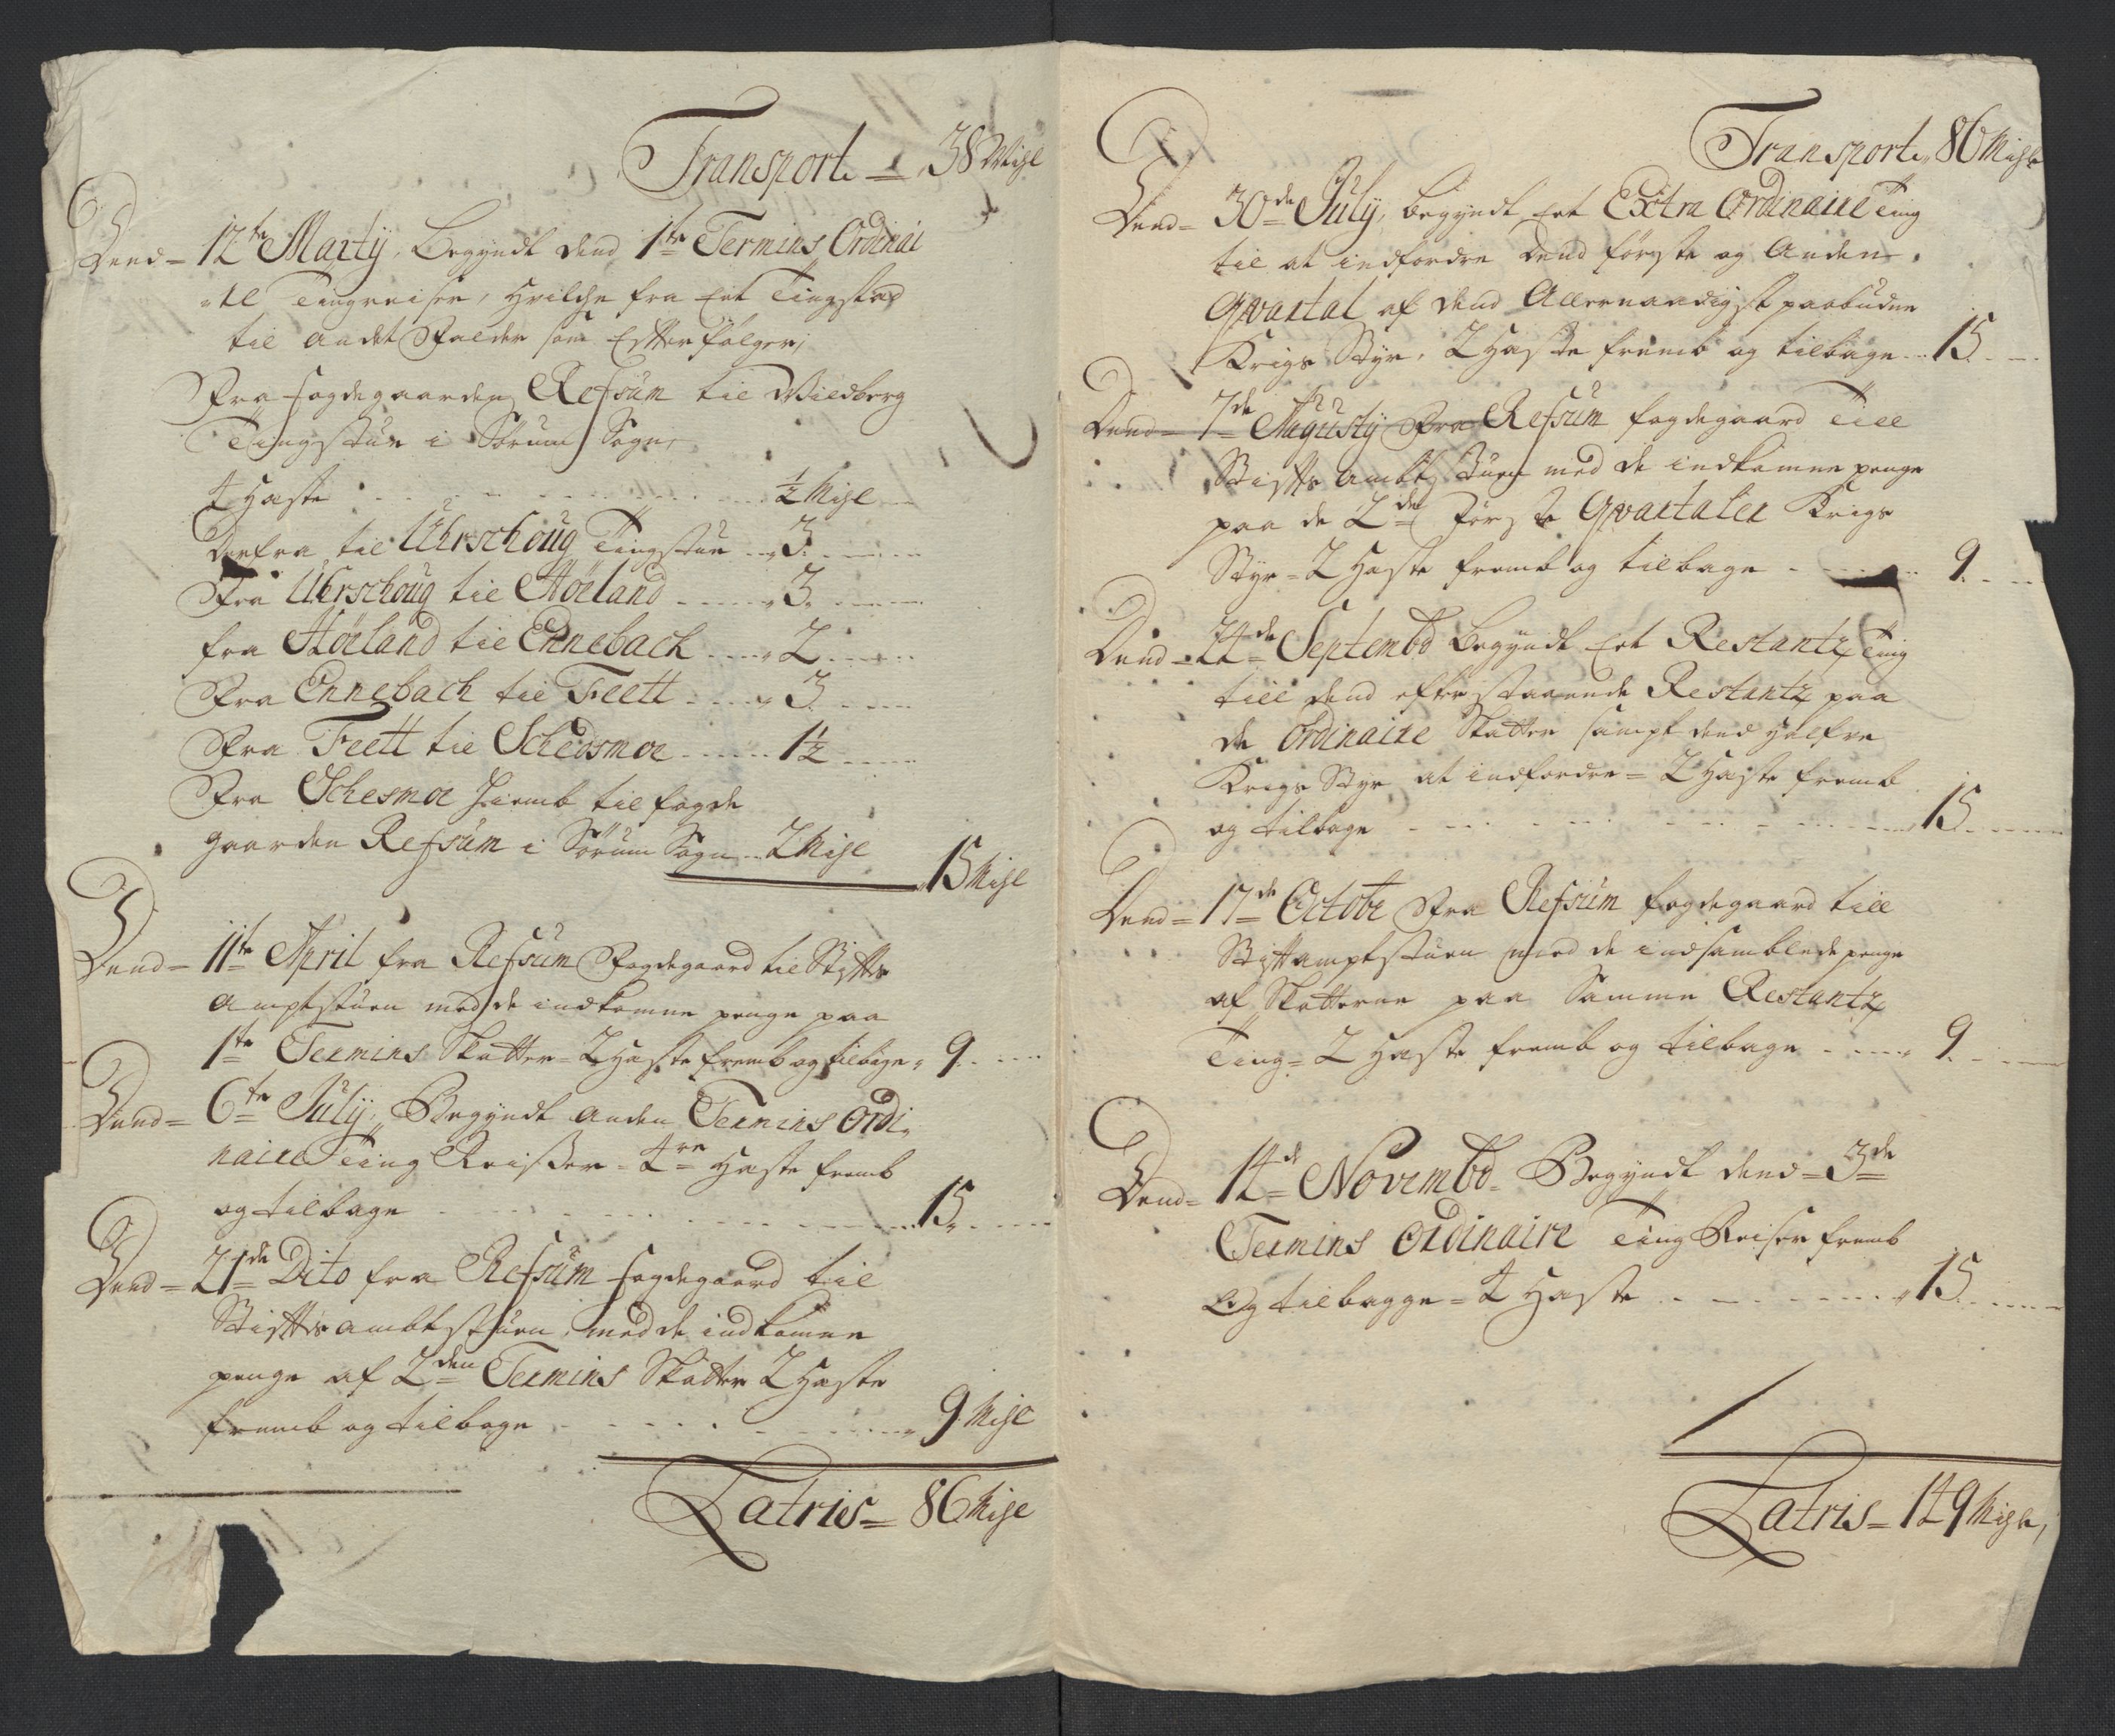 Transport = 38 Mijl
Dend = 12te Martij, Begyndt dend 1te Termins Ordinai
re Tingreiser, hvilche fra Eet Tingsted
til andet Falder som Effterfølger,
Fra fogdegaarden Refsum til Wiedberg
Tingstue i Sørum Sogn,
4 Heste ½ Mijl
Derfra til Uhrschoug Tingstue 3
Fra Uhrschoug til Høeland 3
fra Høeland til Ennebach 2
Fra Ennebach til Feett 3
Fra Feett til Schedsmoe 1½
Fra Schesmoe hiemb til fogde
gaarden Refsum i Sørum Sogn 2 Mijl
15 Mijl
Dend = 11te April fra Refsum Fogdegaard til Stiffts
Amptstuen med de indkomne penge paa
1te Termins Skatter = 2 Heste fremb og tilbage 9
Dend = 6te July, Begyndt anden Termins Ordi-
naire Ting Reisser = 4re Heste fremb
og tilbage 15
Dend = 21de Dito fra Refsum fogdegaard til
Stifftsambtstuen, med de indkomne
penge af 2den Termins Skatter 2 Heste
fremb og tilbage 9 Mijl
Latris = 86 Mijl
Transport 86 Mijl
Dend = 30de July, begyndt Eet Extra Ordinaire Ting
til at indfordre dend første og Anden
Qvartal af dend Allernaadigst paabudne
Krigs Styr, 2 Heste fremb og tilbage 15
Dend = 7de Augusty Fra Refsum fogdegaard Till
Stiffts Ambt Stuen med de indkomne penge
paa de 2de Første Qvartaler Krigs
Styr = 2 Heste fremb og tilbage 9
Dend = 24de Septembr Begyndt Eet Restantz Ting
till dend efterstaaende Restantz paa
de Ordinaire Skatter sampt dend halfve
Krigs Styr at indfordre = 2 Heste fremb
og tilbage 15
Dend = 17de Octobr Fra Refsum fogdegaard till
Stifftamptstuen med de indsamblede penge
af Skatterne paa Samme Restantz
Ting = 2 Heste fremb og tilbage 9
Dend = 14de Novembr Begyndt dend = 3de
Termins Ordinaire Ting Reiser fremb
Og tilbagge = 4 Heste 15
Latris = 149 Mijl,